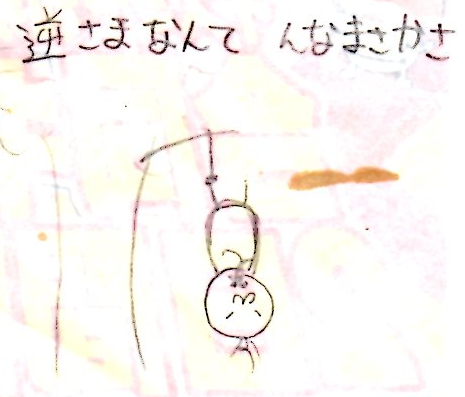 逆さまなんて んなまさかさ